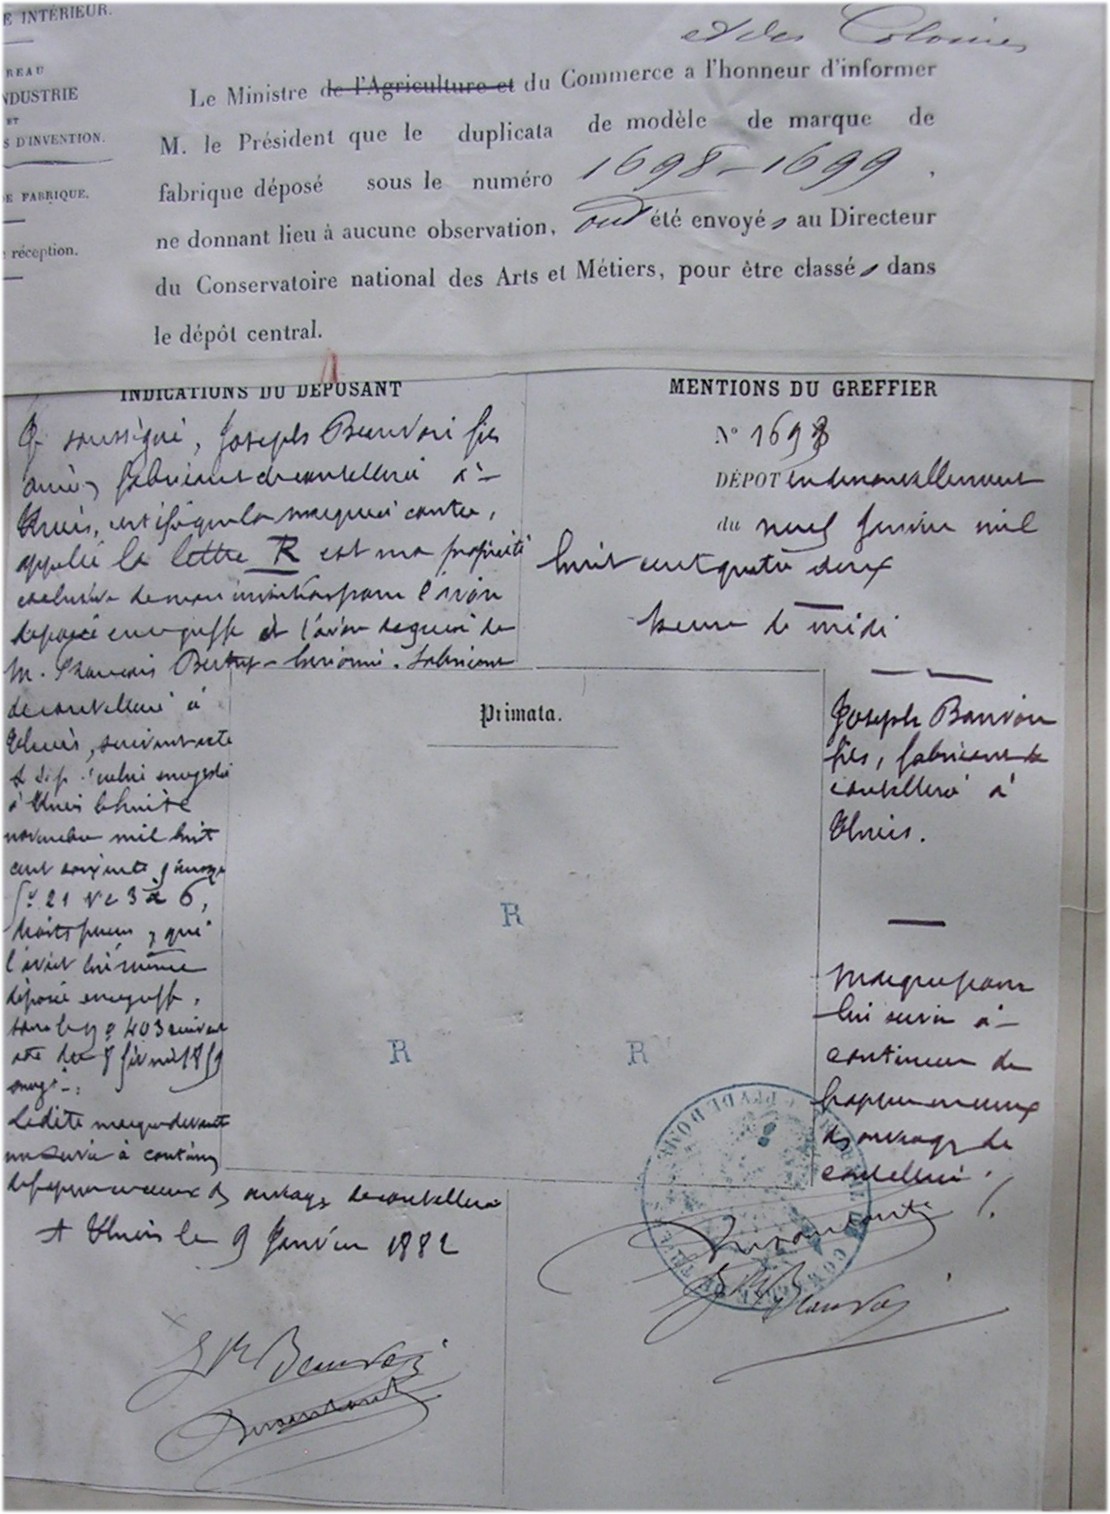 E INTÉRIEUR.
REAU
NDUSTRIE
ET
S D'INVENTION.
DE FABRIQUE.
réception.
et des Colonies
Le Ministre de l'Agriculture et du Commerce a l'honneur d'informer
M. le Président que le duplicata de modèle de marque de
fabrique déposé sous le numéro 1698-1699.
ne donnant lieu à aucune observation, ont été envoyés au Directeur
du Conservatoire national des Arts et Métiers, pour être classés dans
le dépôt central.
INDICATIONS DU DÉPOSANT
soussigné, Joseph Beauvoir fils
ainé, fabricant de coutellerie à
Thiers, certifie que la marque ci contre,
appelée la lettre R est ma propriété
exclusive pour l'avoir
déposée au greffe et l'avoir acquise de
M. François fabricant
de coutellerie à
Thiers, suivant acte
à Thiers le huit
novembre mil huit
cent soixante quinze
fo 21 Vo C 3 à 6,
qui
l'avait lui même
déposée au greffe,
sous le no 403 suivant
acte du
Ladite marque devant
me servir à continuer
de frapper mes ouvrages de coutellerie
A Thiers le 9 Janvier 1882
MENTIONS DU GREFFIER
No 1698
DÉPOT en renouvellement
du neuf Janvier mil
huit cent quatre deux
heure de midi
Primata.
R
R
R
Joseph Beauvoir
fils, fabricant de
coutellerie à
Thiers.
Marque pour
lui servir à
continuer de
frapper
ouvrages de
coutellerie.